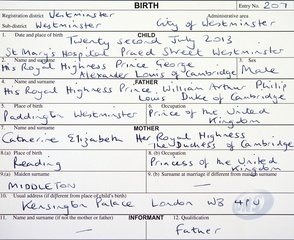 BIRTH Entry No. 207
Registration district Westminster Administrative area
Sub-district Westminster City of Westminster
1. Date and place of birth CHILD
Twenty second July 2013
St Mary's Hospital Praed Street Westminster
2. Name and surname 3. Sex
His Royal Highness Prince George Male
Alexander Louis of Cambridge
4. Name and surname FATHER
His Royal Highness Prince William Arthur Philip
Louis Duke of Cambridge
5. Place of birth 6. Occupation
Paddington Westminster Prince of the United
Kingdom
7. Name and surname MOTHER
Catherine Elizabeth Her Royal Highness
The Duchess of Cambridge
8.(a) Place of birth 8.(b) Occupation
Reading Princess of the United
Kingdom
9.(a) Maiden surname 9.(b) Surname at marriage if different from maiden surname
MIDDLETON —
10. Usual address (if different from place of child's birth)
Kensington Palace London W8 4PU
11. Name and surname (if not the mother or father) INFORMANT 12. Qualification
— Father